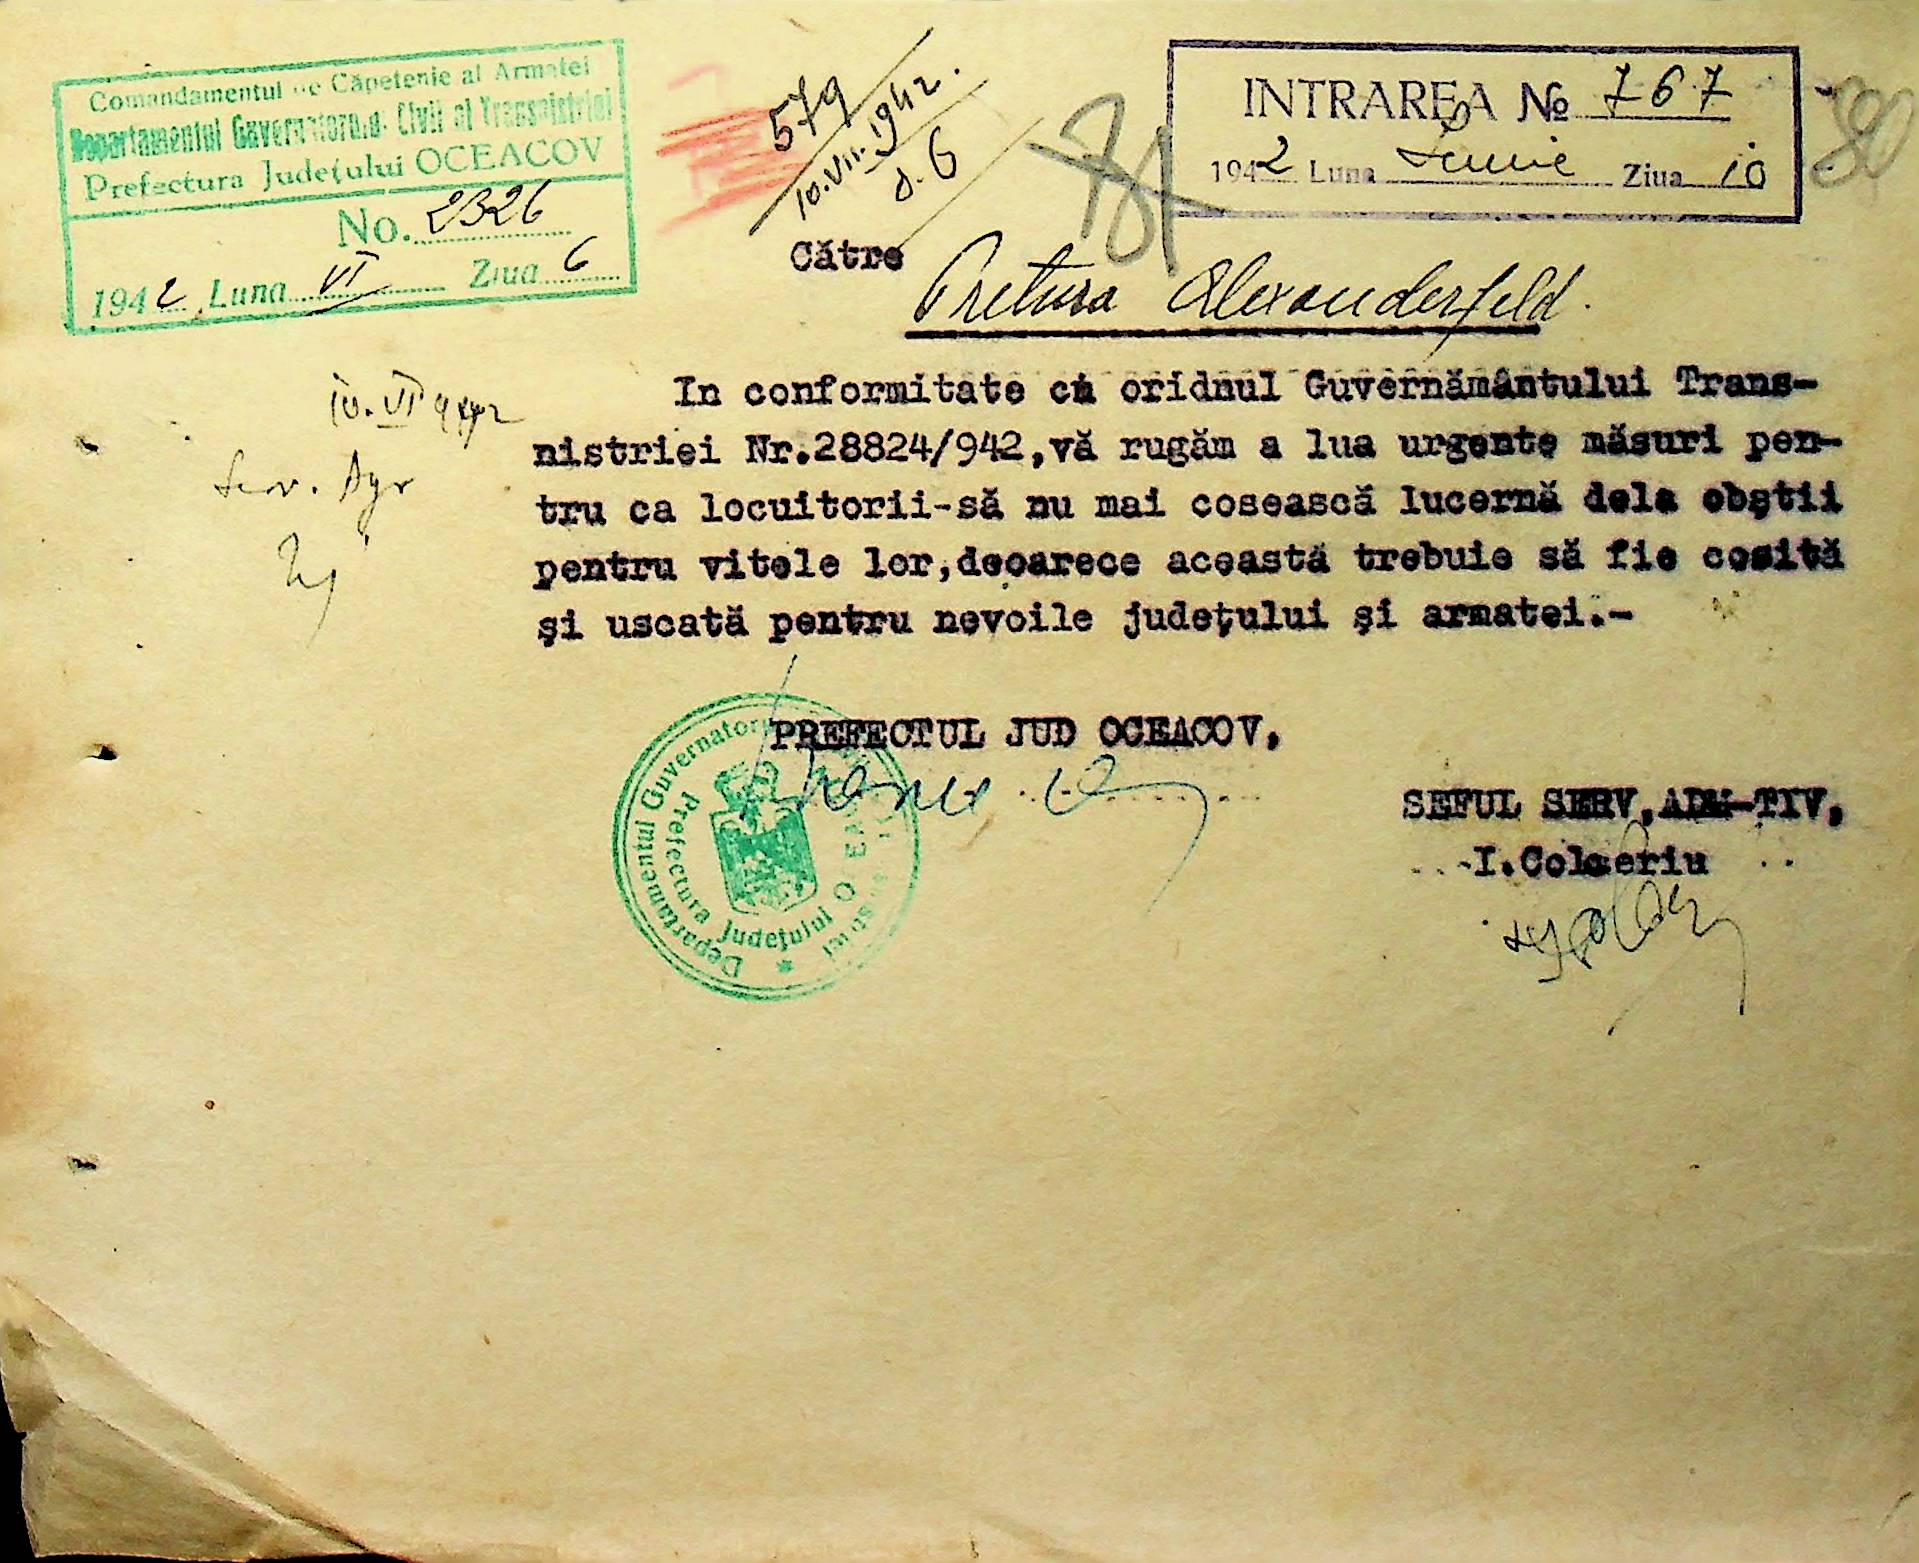 Comandamentul de Căpetenie al Armatei
Departamentul Guvernatorului Civil al Transnistriei
Prefectura Județului OCEACOV
No. 2326
1942 Luna VI Ziua 6
579
10.VII.1942.
d.6
INTRAREA № 767
1942 Luna Iunie Ziua 10
Către
Pretura Alexanderfeld.
10.VI 942
Serv. Agr
In conformitate cu oridnul Guvernământului Trans-
nistriei Nr.28824/942,vă rugăm a lua urgente măsuri pen-
tru ca locuitorii-să nu mai cosească lucernă dela obștii
pentru vitele lor,deoarece această trebuie să fie cosită
și uscată pentru nevoile județului și armatei.-
PREFECTUL JUD OCEACOV,
Departamentul Guvernatorul
Prefectura Județului O
SEFUL SERV,ADM-TIV,